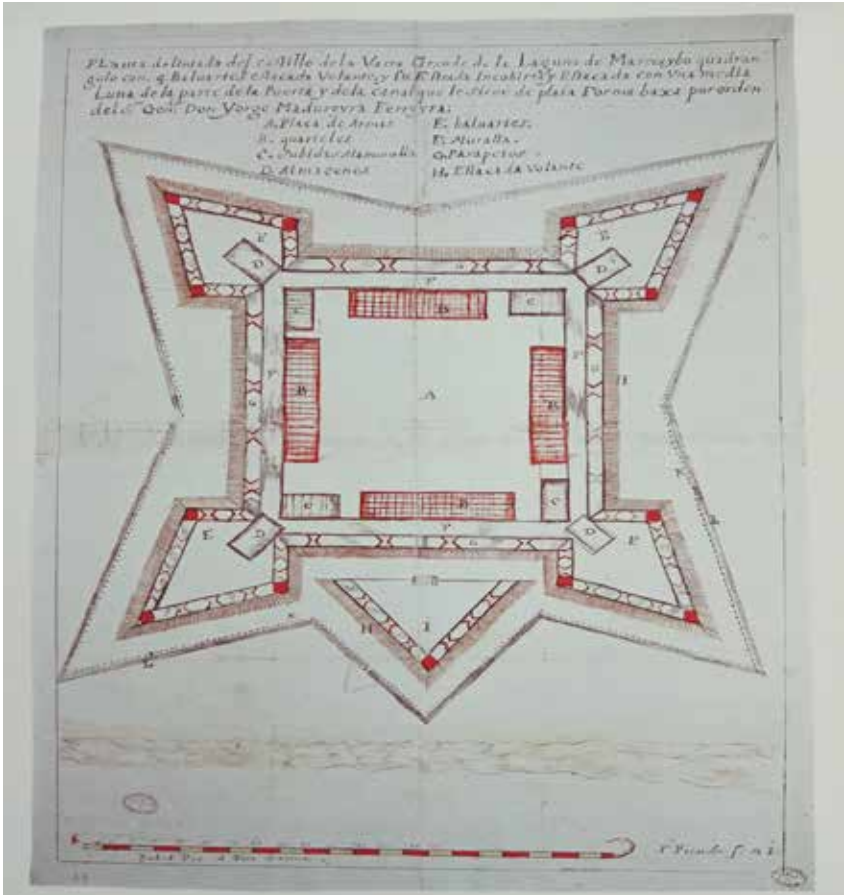 Planta delineada del castillo de la Varra Grande de la Laguna de Maracaybo quadran
gulo con 4 Baluartes estacada Volante, y su Estrada Encubierta y Estacada con Vna media
Luna de la parte de la Puerta y de la canal que le sirve de plata Forma baxa por orden
del Sr. Gor. Don Jorge Madureyra Ferreyra:
A. Plaça de Armas
B. quarteles
C. Subidas Alamuralla
D. Almacenes
E. baluartes.
F. Muralla.
G. Parapetos.
H. Estacada Volante
E
E
D
D
G
F
C
B
C
B
A
B
F
F
G
G
H
C
B
C
F
D
D
E
E
G
H
I